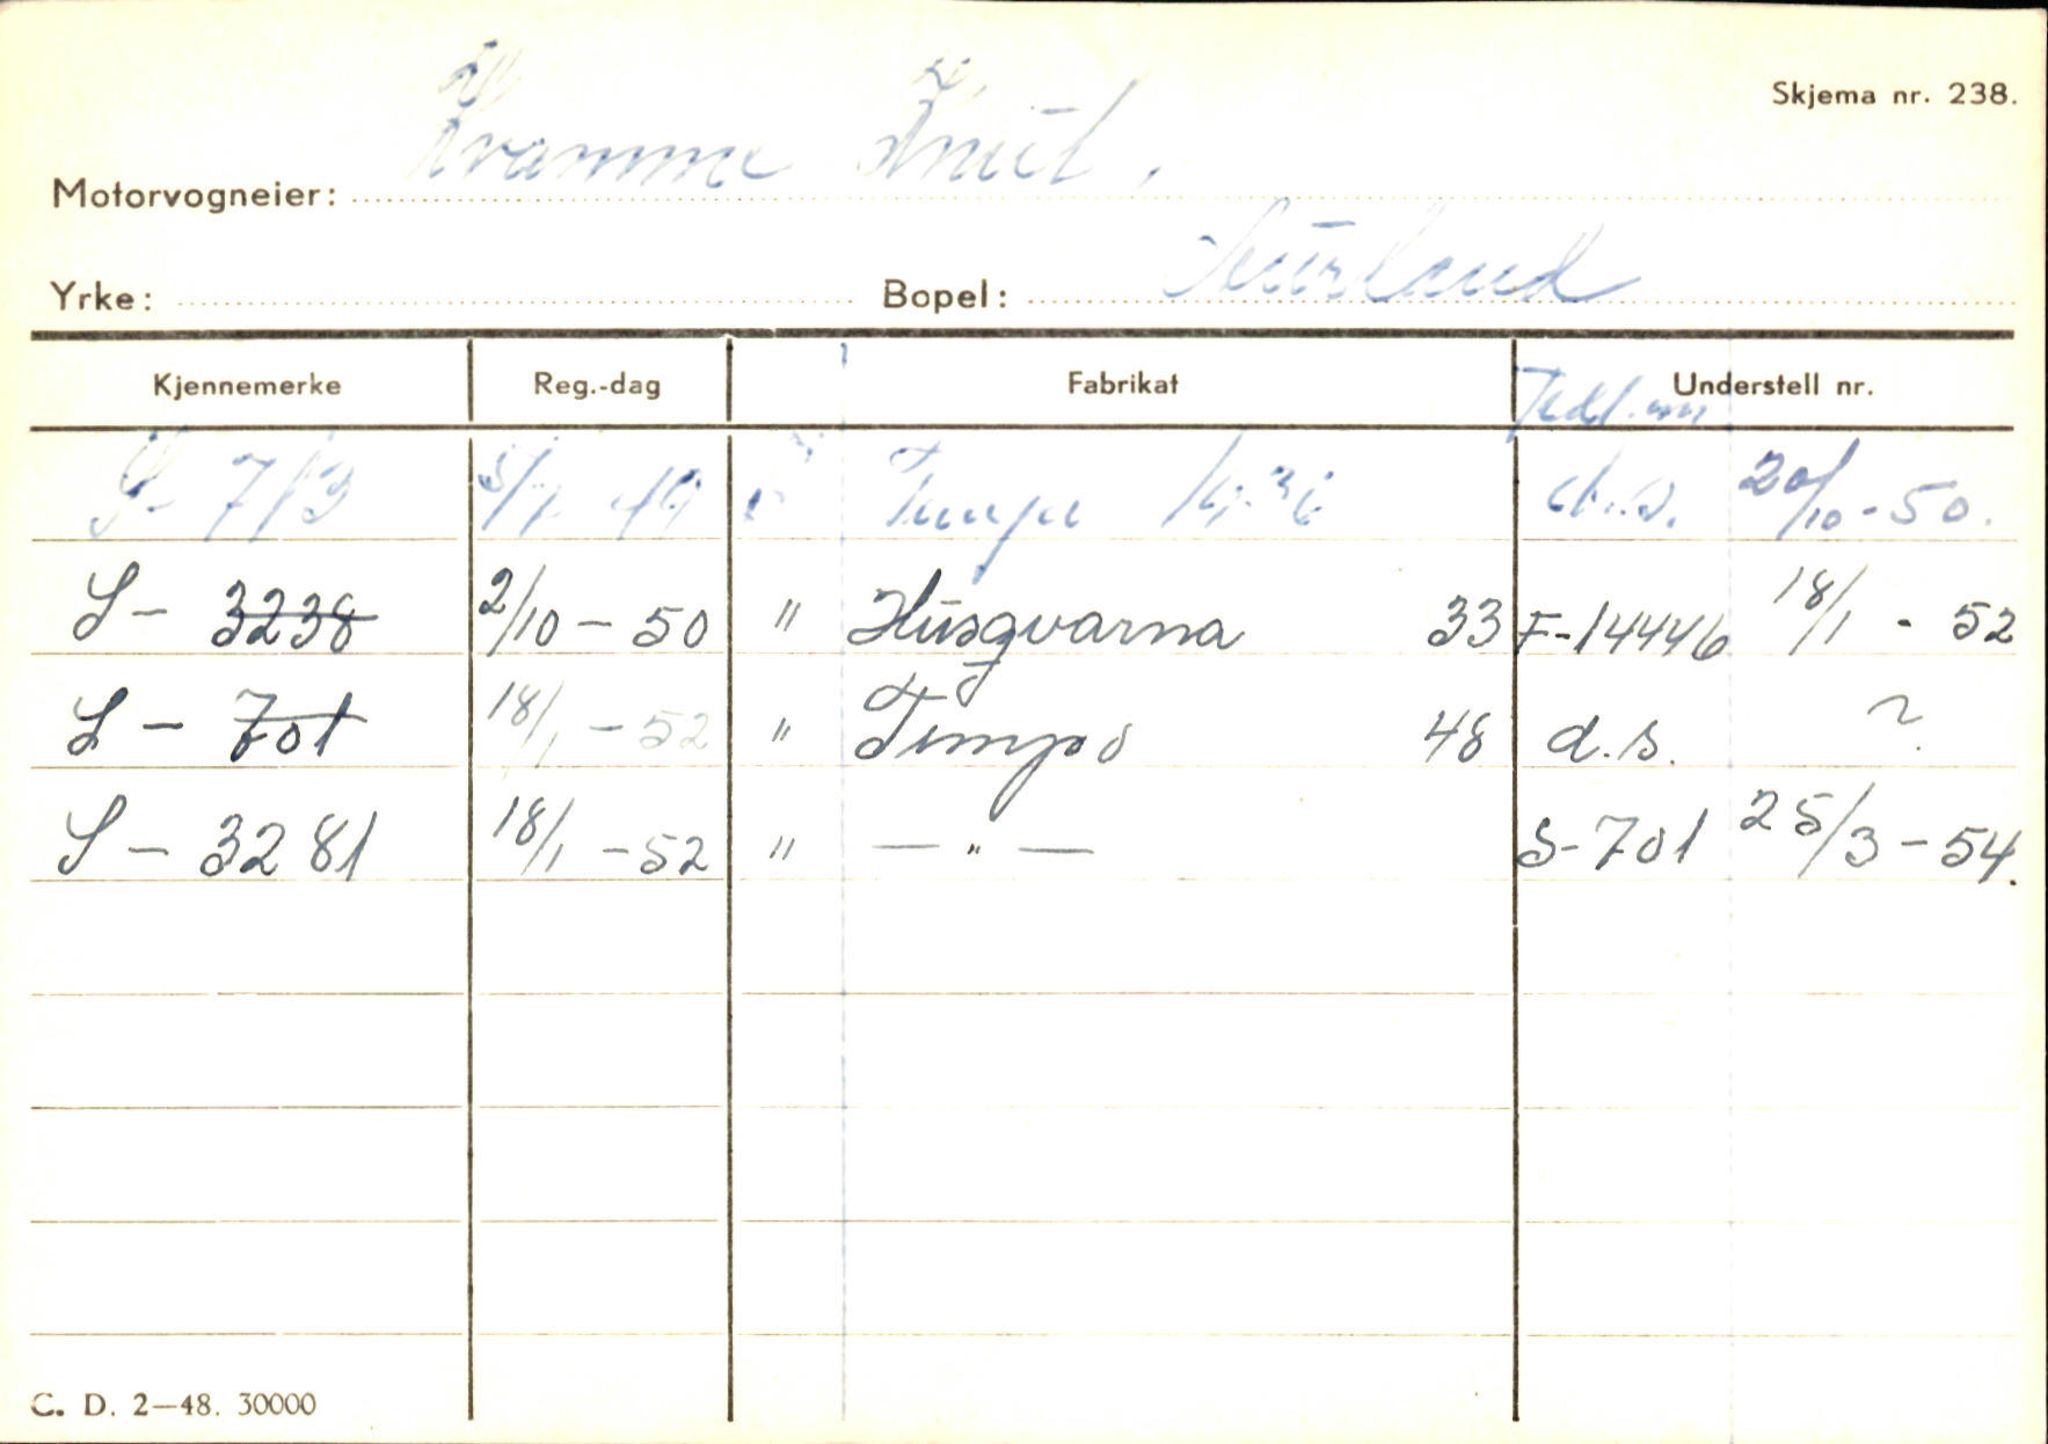 Skjema nr. 238.
Motorvogneier: Kvamme Knut.
Yrke: Bopel: Aurland
Kjennemerke Reg.-dag Fabrikat Understell nr.
S- 713 5/7 49 Tempo 1936 d.s. 20/10-50.
S- 3238 2/10-50 " Husqvarna 33 F-14446 18/1 - 52
S- 701 18/1-52 " Tempo 48 d.s. ?
S- 3281 18/1-52 " — " — S-701 25/3-54.
C. D. 2—48. 30000